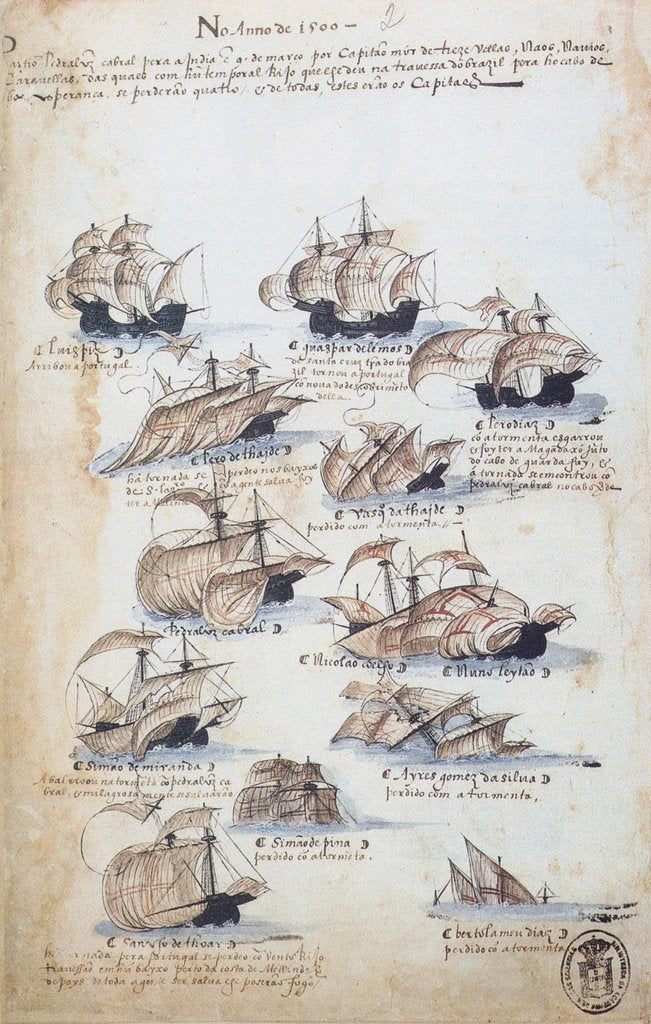 No Anno de 1500 — 2
Partio Pedralvz cabral pera a India é 9. de março por Capitão mór de treze vellas, Naos, Navios,
Caravellas, das quaes com hū temporal Rijo que lhe deu na travessa do brazil pera ho cabo de
boa sperança, se perderão quatro, e de todas, estes erão os Capitaẽs
Luis piz
Arribou a portugal.
Gaspar de lemos
de santa cruz
zil tornou a portugal
cō nova do descobrimēto
della.
Pero diaz
cō a tormenta esgarrou
e foy ter a Magadaxó Júto
do cabo de guardafuy, e
á tornada se emcontrou cō
pedralvz cabral no cabo
Pero de thaide
há tornada se perdeo nos bayxos
de S. Laço e a gente salva foy
ter a
Vasq̄ da thaide
perdido com a tormenta.
Pedralvz cabral
Nicolao coelho
Nuno leytão
Simão de miranda
Abalrroou na tormēta cō pedralvz ca
bral, e milagrosamente se salvarão
Ayres gomez da silva
perdido com a tormenta,
Simão de pina
perdido cō a tormēta.
Sancho de thoar
tornada pera portugal se perdeo cō vento Rijo
travessão em hū bayxo perto da costa de Mellinde, e
de poys de toda a gente ser salva lhe poserão fogo
bertolameu diaz
perdido cō a tormenta